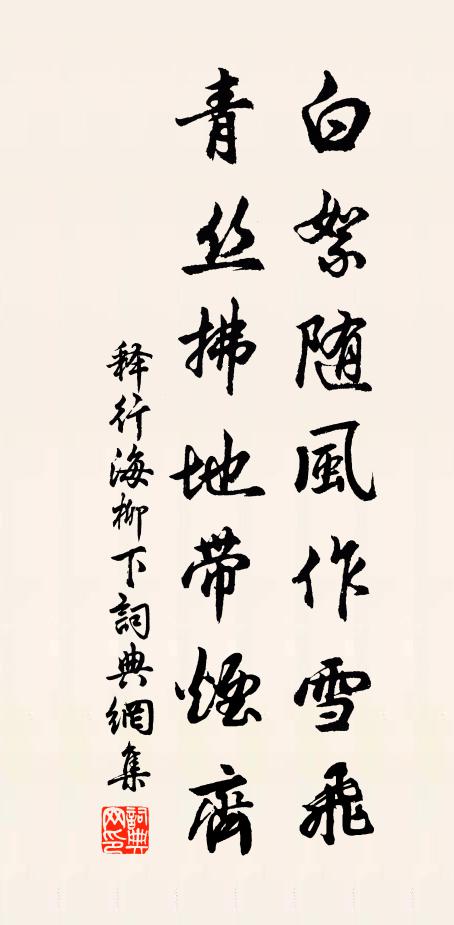 白絮随風作雪飛
青丝拂地带煙齊
释行海柳下詞典網集
詞典網印